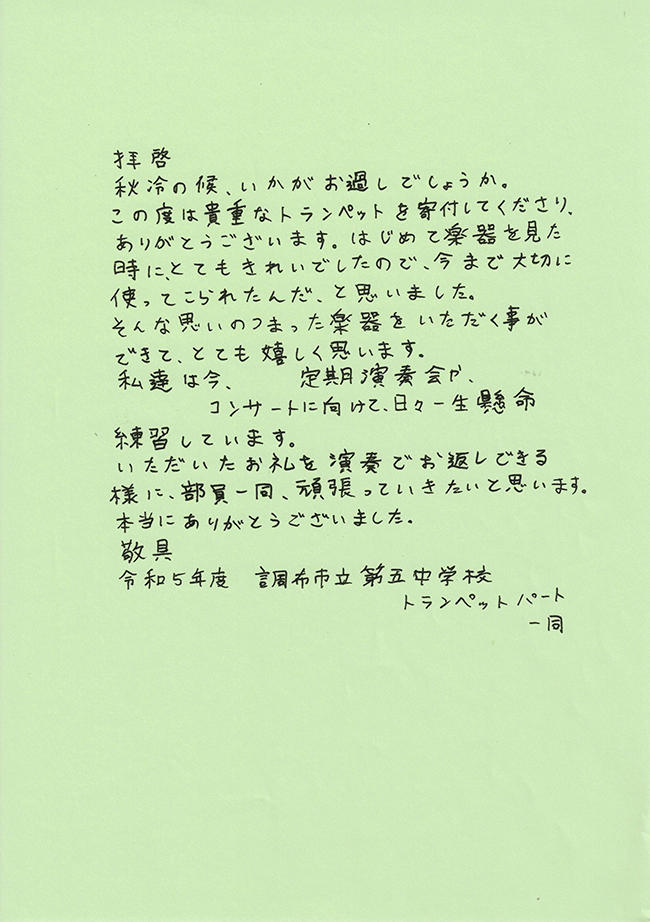 拝啓
秋冷の候、いかがお過しでしょうか。
この度は貴重なトランペットを寄付してくださり、
ありがとうございます。はじめて楽器を見た
時に、とてもきれいでしたので、今まで大切に
使ってこられたんだ、と思いました。
そんな思いのつまった楽器をいただく事が
できて、とても嬉しく思います。
私達は今、 定期演奏会や、
コンサートに向けて、日々一生懸命
練習しています。
いただいたお礼を演奏でお返しできる
様に、部員一同、頑張っていきたいと思います。
本当にありがとうございました。
敬具
令和5年度 調布市立第五中学校
トランペットパート
一同